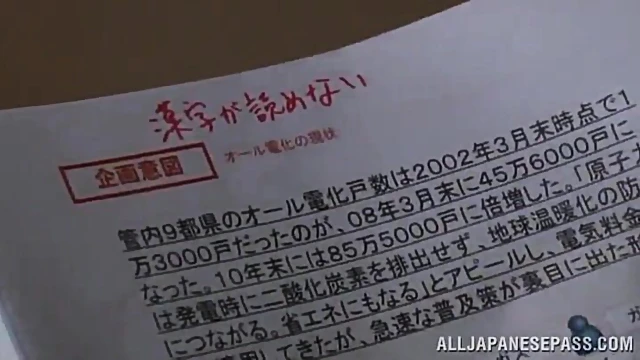 漢字が読めない
企画意図
オール電化の現状
管内9都県のオール電化戸数は2002年3月末時点で1
万3000戸だったのが、08年3月末に45万6000戸に
なった。10年末には85万5000戸に倍増した。「原子力
は発電時に二酸化炭素を排出せず、地球温暖化の防
につながる。省エネにもなる」とアピールし、電気料金
してきたが、急速な普及策が裏目に出た
ALLJAPANESEPASS.COM